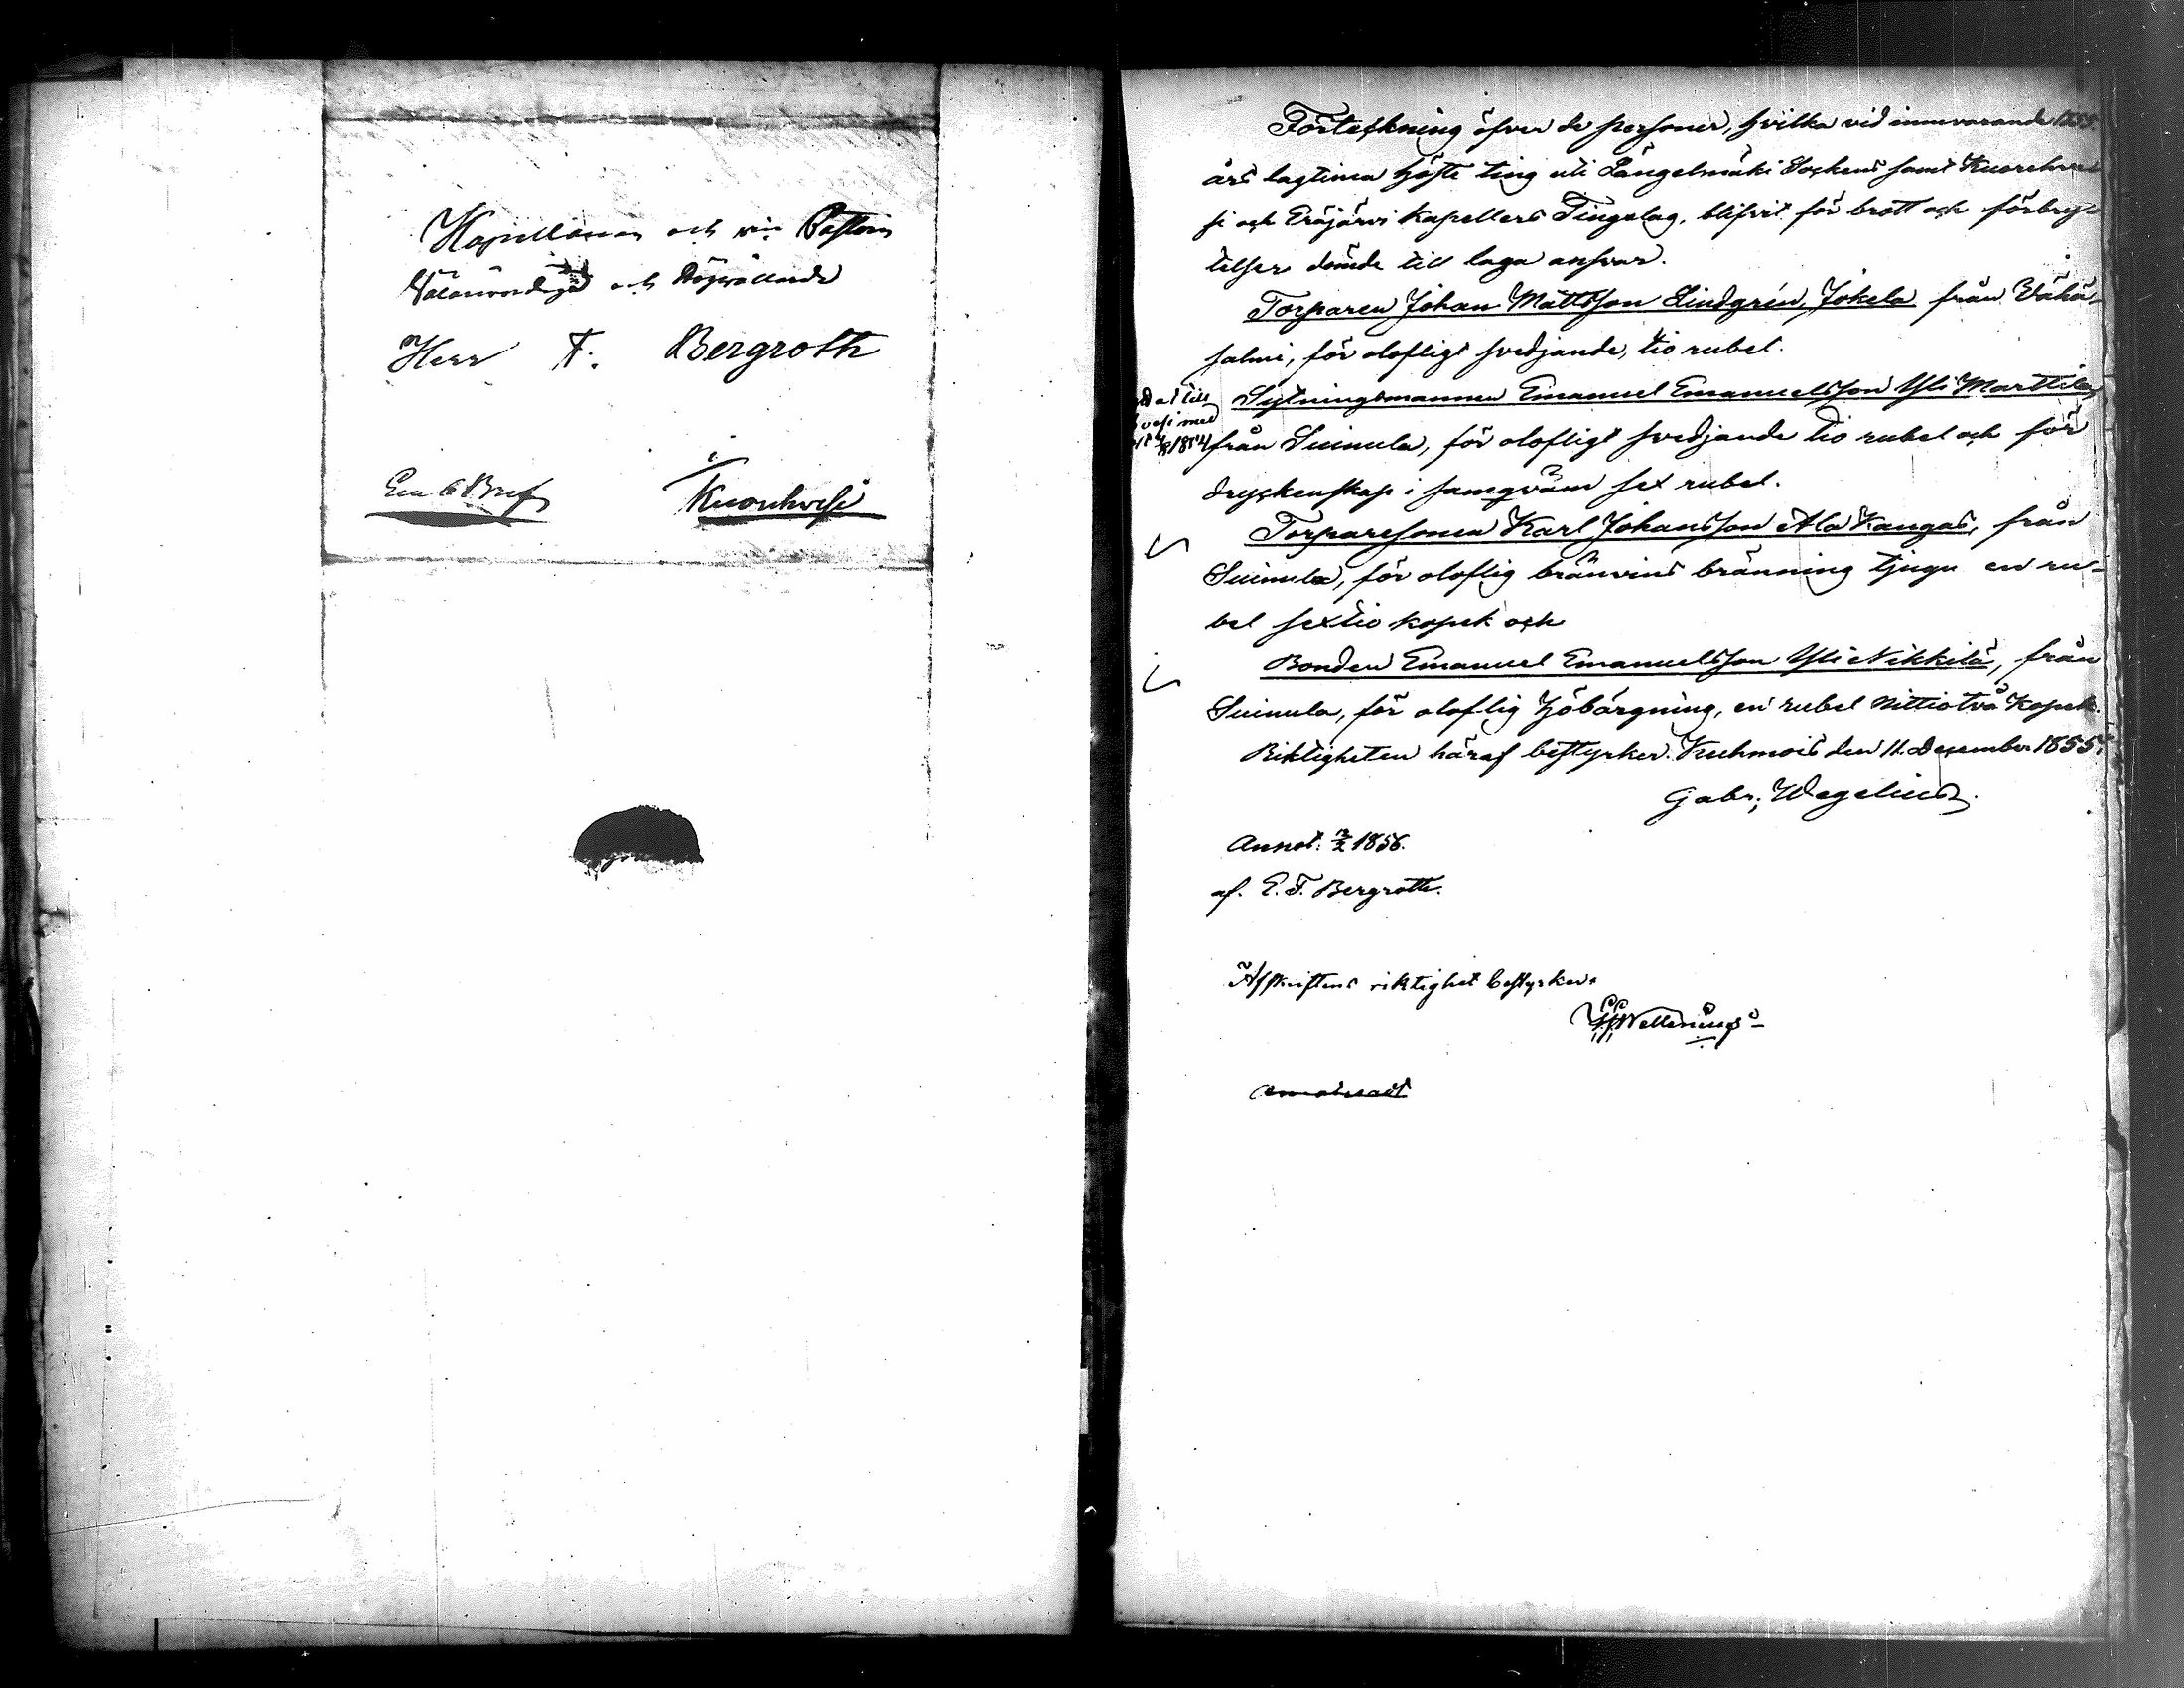 Kapellanen och vice Pastorn
Välärevördige och Högvällärde
Herr F. Bergroth
i
Em. Bref Kuorehvesi
Förteckning öfver de personer, hvilka vid innevarande 1855
års lagtima Höste ting uti Längelmäki Sockens samt Kuorehve-
si och Eräjärvi Kapellers Tingslag, blifvit för brott och förbry-
telser dömde till laga ansvar.
Torparen Johan Mattsson Lindgrén, Jokela från Vähä-
salmi, för olofligt svedjande, tio rubel.
Sytningsmannen Emanuel Emanuelsson Yli Marttila,
från Suinula, för olofligt svedjande tio rubel och för
dryckenskap i samqväm sex rubel.
Torparesonen Karl Johansson Ala Kangas, från
Suinula, för oloflig bränvins bränning tjugu en ru-
bel sextio kopek och
Bonden Emanuel Emanuelsson Yli Nikkilä, från
Suinula, för oloflig Höbärgning, en rubel nittiotvå Kopek.
Riktigheten häraf bestyrker. Kuhmois den 11. December 1855.
Gabr. Wegelius.
Annot. 1856.
af. E. F. Bergroth.
Afskriftens riktighet bestyrker